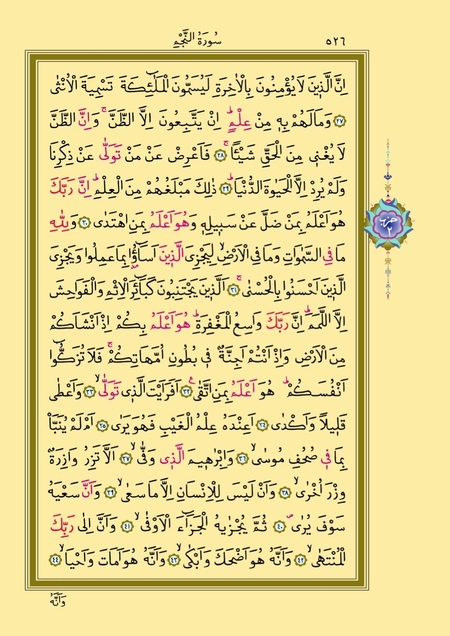 ٥٢٦ سُورَةُ النَّجْمِ
اِنَّ الَّذٖينَ لَا يُؤْمِنُونَ بِالْاٰخِرَةِ لَيُسَمُّونَ الْمَلٰٓئِكَةَ تَسْمِيَةَ الْاُنْثٰى
﴿٢٧﴾ وَمَا لَهُمْ بِهٖ مِنْ عِلْمٍؕ اِنْ يَتَّبِعُونَ اِلَّا الظَّنَّۚ وَاِنَّ الظَّنَّ
لَا يُغْنٖى مِنَ الْحَقِّ شَيْـًٔاۚ ﴿٢٨﴾ فَاَعْرِضْ عَنْ مَنْ تَوَلّٰى عَنْ ذِكْرِنَا
وَلَمْ يُرِدْ اِلَّا الْحَيٰوةَ الدُّنْيَاؕ ﴿٢٩﴾ ذٰلِكَ مَبْلَغُهُمْ مِنَ الْعِلْمِؕ اِنَّ رَبَّكَ
هُوَ اَعْلَمُ بِمَنْ ضَلَّ عَنْ سَبٖيلِهٖ وَهُوَ اَعْلَمُ بِمَنِ اهْتَدٰى ﴿٣٠﴾ وَلِلّٰهِ
مَا فِى السَّمٰوَاتِ وَمَا فِى الْاَرْضِۙ لِيَجْزِىَ الَّذٖينَ اَسَٓاؤُ۫ا بِمَا عَمِلُوا وَيَجْزِىَ
الَّذٖينَ اَحْسَنُوا بِالْحُسْنٰىۚ ﴿٣١﴾ اَلَّذٖينَ يَجْتَنِبُونَ كَبَٓائِرَ الْاِثْمِ وَالْفَوَاحِشَ
اِلَّا اللَّمَمَؕ اِنَّ رَبَّكَ وَاسِعُ الْمَغْفِرَةِؕ هُوَ اَعْلَمُ بِكُمْ اِذْ اَنْشَاَكُمْ
مِنَ الْاَرْضِ وَاِذْ اَنْتُمْ اَجِنَّةٌ فٖى بُطُونِ اُمَّهَاتِكُمْۚ فَلَا تُزَكُّٓوا
اَنْفُسَكُمْؕ هُوَ اَعْلَمُ بِمَنِ اتَّقٰىۚ ﴿٣٢﴾ اَفَرَاَيْتَ الَّذٖى تَوَلّٰىۙ ﴿٣٣﴾ وَاَعْطٰى
قَلٖيلًا وَاَكْدٰى ﴿٣٤﴾ اَعِنْدَهُ عِلْمُ الْغَيْبِ فَهُوَ يَرٰى ﴿٣٥﴾ اَمْ لَمْ يُنَبَّاْ
بِمَا فٖى صُحُفِ مُوسٰىۙ ﴿٣٦﴾ وَاِبْرٰهٖيمَ الَّذٖى وَفّٰىۙ ﴿٣٧﴾ اَلَّا تَزِرُ وَازِرَةٌ
وِزْرَ اُخْرٰىۙ ﴿٣٨﴾ وَاَنْ لَيْسَ لِلْاِنْسَانِ اِلَّا مَا سَعٰىۙ ﴿٣٩﴾ وَاَنَّ سَعْيَهُ
سَوْفَ يُرٰىࣕ ﴿٤٠﴾ ثُمَّ يُجْزٰيهُ الْجَزَٓاءَ الْاَوْفٰىۙ ﴿٤١﴾ وَاَنَّ اِلٰى رَبِّكَ
الْمُنْتَهٰىۙ ﴿٤٢﴾ وَاَنَّهُ هُوَ اَضْحَكَ وَاَبْكٰىۙ ﴿٤٣﴾ وَاَنَّهُ هُوَ اَمَاتَ وَاَحْيَاۙ ﴿٤٤﴾
وَاَنَّهُ